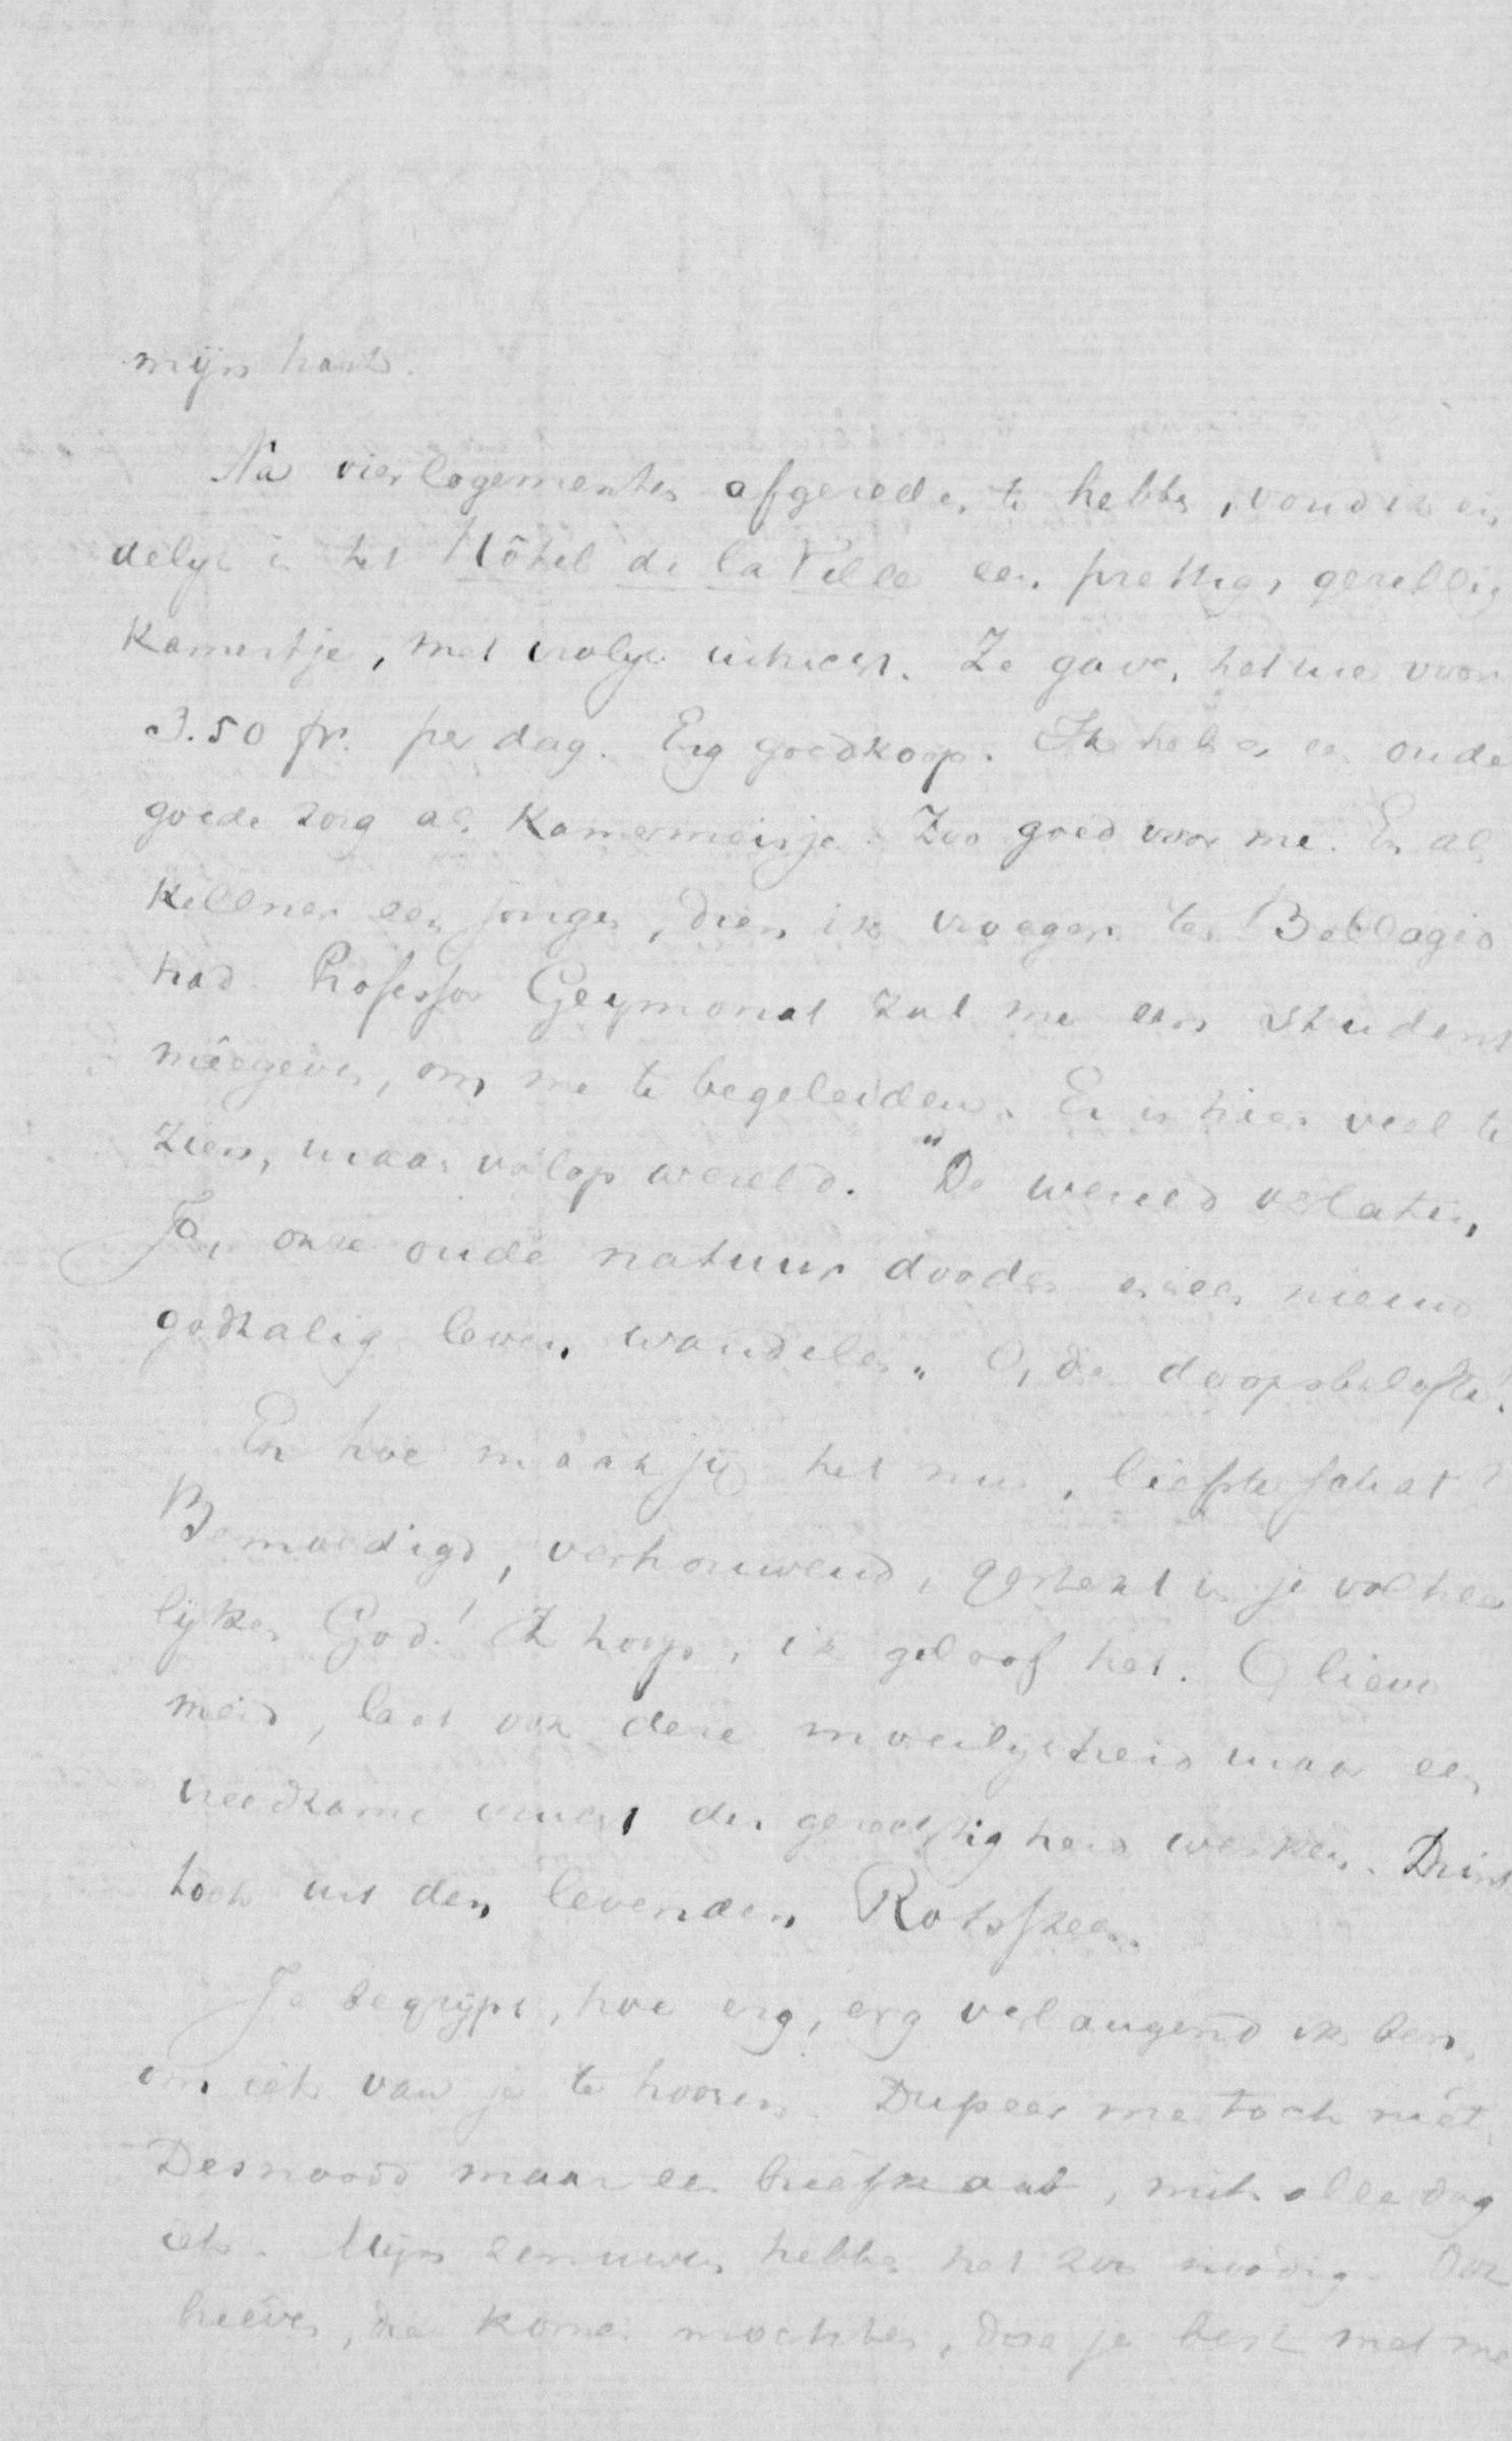 mijn hart.
Na vier logementen afgereden te hebben, vond ik ein
delijk in het Hôtel de la Ville een prettig, gezellig
kamertje, met vrolijk uitzicht. Ze gaven het me voor
3.50 fr. per dag. Erg goedkoop. Ik heb er een oude
goede zorg als kamermeisje. Zoo goed voor me. En als
kellner een jongen, dien ik vroeger te Bellagio
had. Professor Geymonat zal me een student
meêgeven, om me te begeleiden. Er is hier veel te
zien, maar volop wereld. "De wereld verlaten,
Ja, onze oude natuur dooden en een nieuw
godzalig leven wandelen." O, die doopsbelofte!
En hoe maak jij het nu, liefste schat?
Bemoedigd, vertrouwend, gesterkt in je volheer
lijken God! Ik hoop, ik geloof het. O, lieve
meid, laat ook deze moeilijkheid maar een
vreedzame vrucht der gerechtigheid werken. Drink
toch uit den levenden Rotssteen.
Je begrijpt, hoe erg, erg verlangend ik ben,
om iets van je te hooren. Dupeer me toch niet.
Desnoods maar een briefkaart, mits alle dag
iets. Mijn zenuwen hebben het zoo noodig. Ook
brieven, die komen mochten, doe je best met me